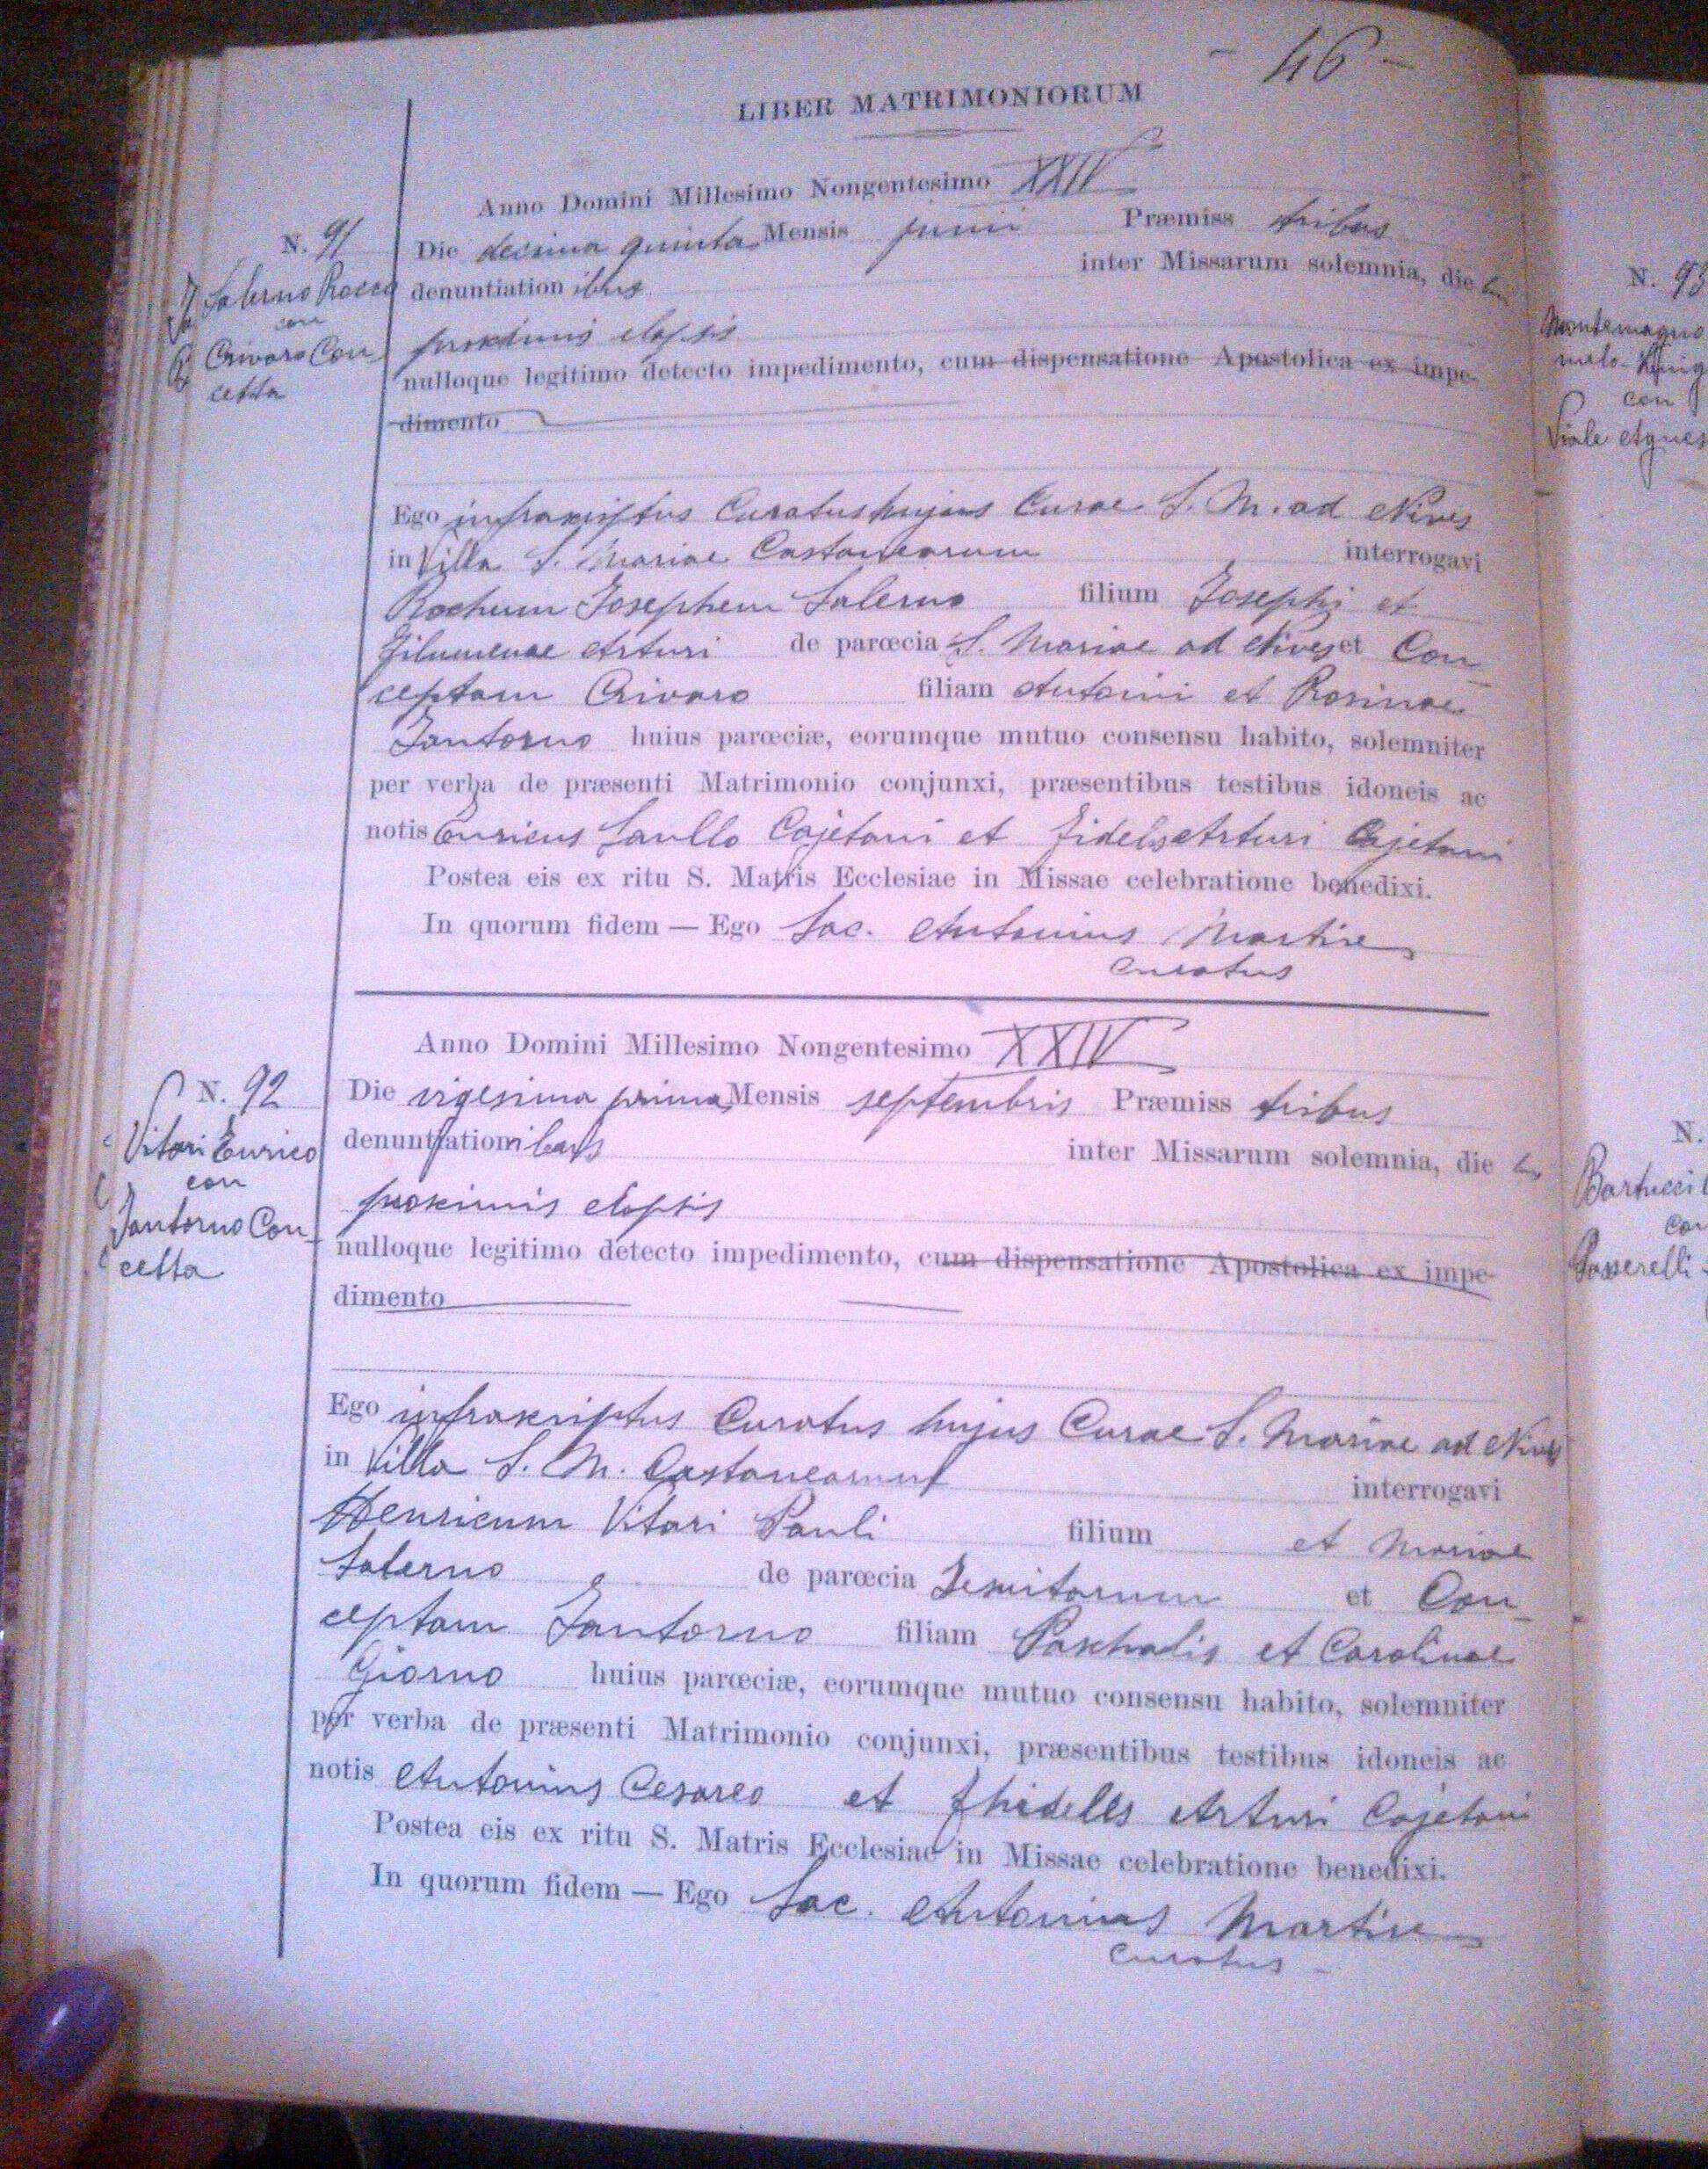 - 46 -
LIBER MATRIMONIORUM
Anno Domini Millesimo Nongentesimo XXIV
N. 91
Die decima quinta Mensis junii Præmiss tribus
denuntiation ibus inter Missarum solemnia, die
Salerno Rocco
con
Crivaro Con
cetta
proximis elapsis
nulloque legitimo detecto impedimento, cum dispensatione Apostolica ex impe-
dimento
Ego infrascriptus Curatus hujus Curae S. M. ad Nives
in Villa S. Mariae Castanearum interrogavi
Rochum Josephem Salerno filium Josephi et
Filumenae Arturi de parœcia S. Mariae ad Nives et Con
ceptam Crivaro filiam Antonii et Rosinae
Iantorno huius parœciæ, eorumque mutuo consensu habito, solemniter
per verba de præsenti Matrimonio conjunxi, præsentibus testibus idoneis ac
notis Enricus Saullo Cajetani et Fidelis Arturi Cajetani
Postea eis ex ritu S. Matris Ecclesiae in Missae celebratione benedixi.
In quorum fidem — Ego Sac. Antonius Martire
Curatus
Anno Domini Millesimo Nongentesimo XXIV
N. 92
Die vigesima prima Mensis septembris Præmiss tribus
denuntiation ibus inter Missarum solemnia, die
Vitari Enrico
con
Iantorno Con
cetta
proximis elapsis
nulloque legitimo detecto impedimento, cum dispensatione Apostolica ex impe-
dimento
Ego infrascriptus Curatus hujus Curae S. Mariae ad Nives
in Villa S. M. Castanearum interrogavi
Henricum Vitari Pauli filium et Mariae
Salerno de parœcia Jesuitarum et Con
ceptam Iantorno filiam Paschalis et Carolinae
Giorno huius parœciæ, eorumque mutuo consensu habito, solemniter
per verba de præsenti Matrimonio conjunxi, præsentibus testibus idoneis ac
notis Antonius Cesareo et Fhidelis Arturi Cajetani
Postea eis ex ritu S. Matris Ecclesiae in Missae celebratione benedixi.
In quorum fidem — Ego Sac. Antonius Martire
Curatus
N. 93
Montemagno
con
Viale Agnes
N.
Bartucci
Passerelli